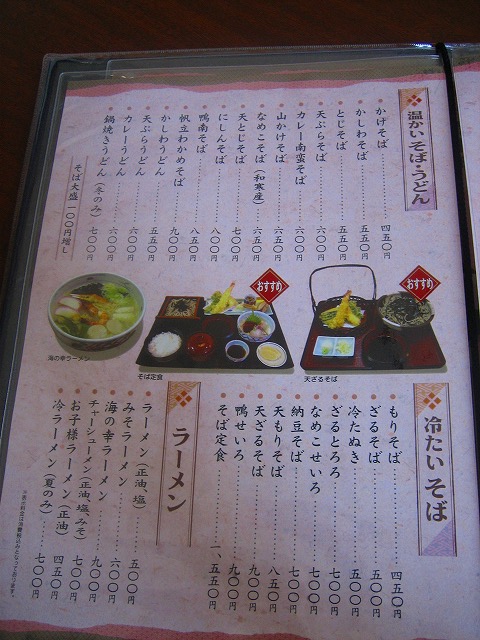 温かいそば・うどん
かけそば 四五〇円
かしわそば 五五〇円
とじそば 五五〇円
天ぷらそば 六〇〇円
カレー南蛮そば 六〇〇円
山かけそば 六五〇円
なめこそば（和寒産） 六五〇円
天とじそば 七〇〇円
にしんそば 八〇〇円
鴨南そば 八〇〇円
帆立わかめそば 九〇〇円
かしわうどん 五五〇円
天ぷらうどん 六〇〇円
カレーうどん 六〇〇円
鍋焼きうどん（冬のみ） 七〇〇円
そば大盛 一〇〇円増し
おすすめ
天ざるそば
おすすめ
そば定食
海の幸ラーメン
冷たいそば
もりそば 四五〇円
ざるそば 五〇〇円
冷たぬき 五〇〇円
ざるとろろ 七〇〇円
なめこせいろ 七〇〇円
納豆そば 七〇〇円
天もりそば 八五〇円
天ざるそば 九〇〇円
鴨せいろ 九〇〇円
そば定食 一、五五〇円
ラーメン
ラーメン（正油、塩） 五〇〇円
みそラーメン 六〇〇円
海の幸ラーメン 九〇〇円
チャーシューメン（正油、塩、みそ） 七〇〇円
お子様ラーメン（正油） 四五〇円
冷ラーメン（夏のみ） 七〇〇円